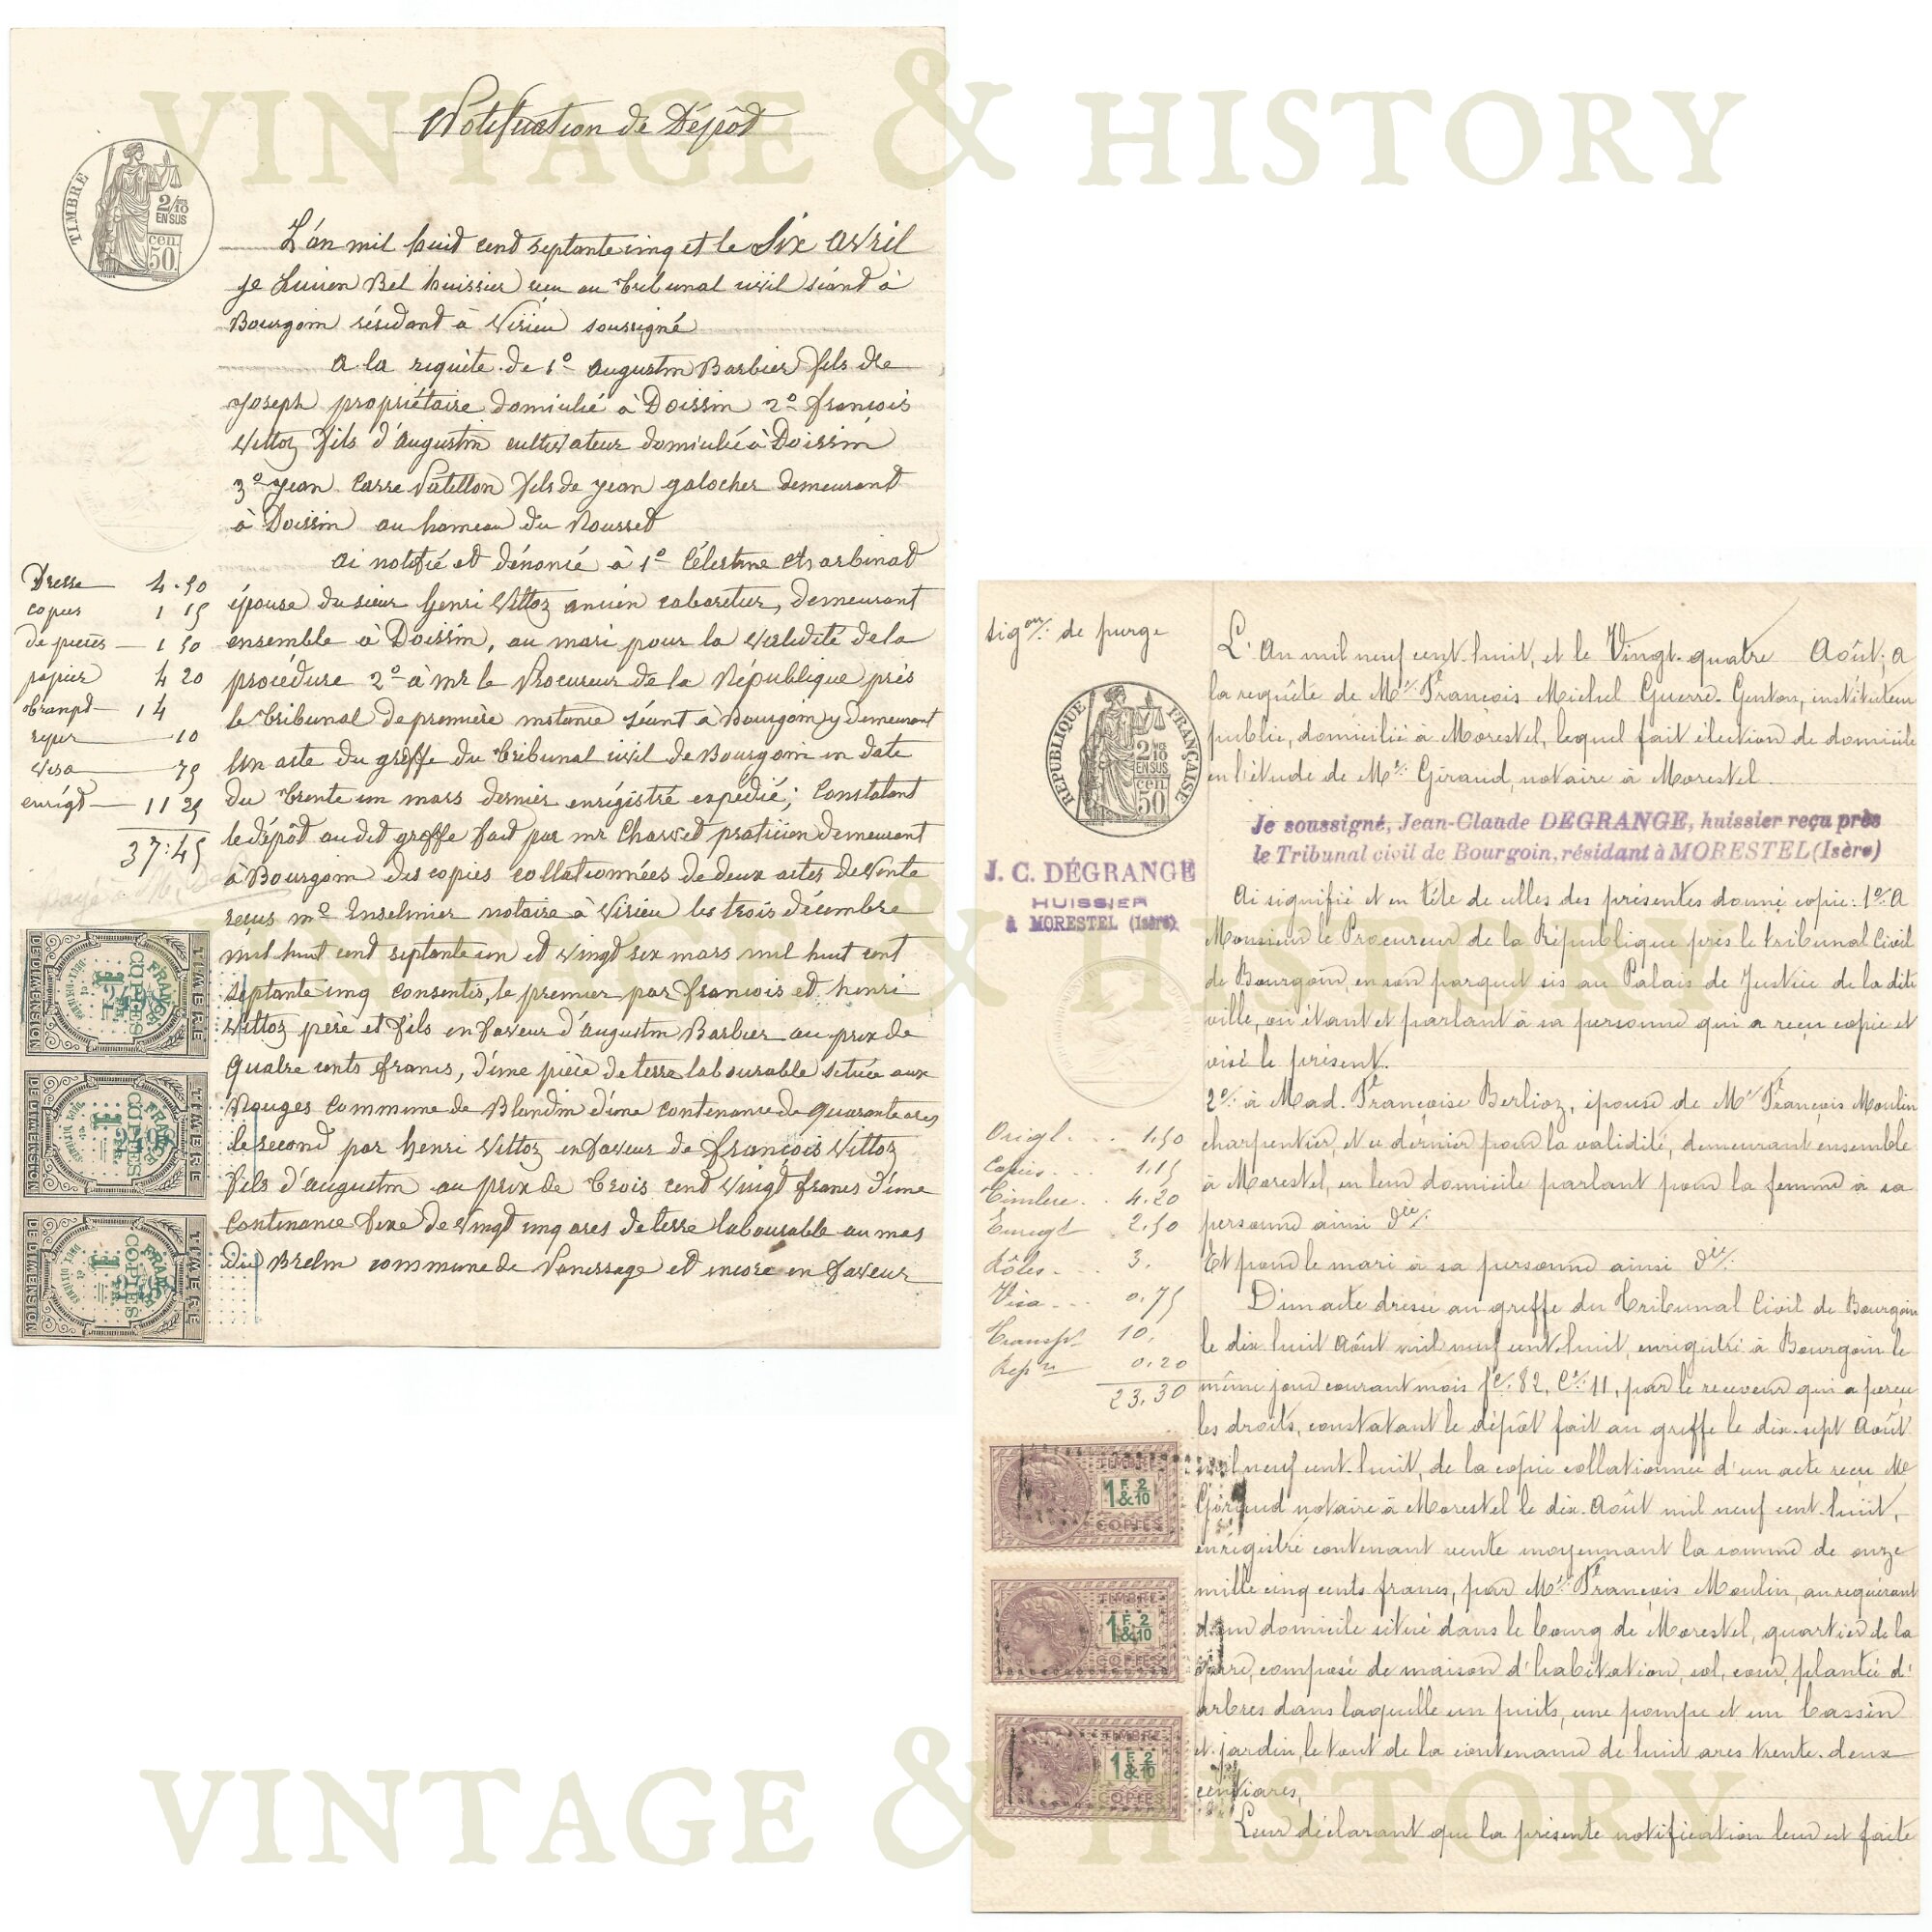 VINTAGE & HISTORY
Notification de Dépôt
TIMBRE
2/10
EN SUS
cen
50
L'an mil huit cent septante cinq et le Six avril
je Lucien Bel huissier reçu au tribunal civil séant à
Bourgoin résidant à Virieu soussigné
A la requête de 1º Augustin Barbier fils de
Joseph propriétaire domicilié à Doissin 2º françois
Vittoz fils d'augustin cultivateur domicilié à Doissin
3º Jean Carre fils de Jean galocher demeurant
à Doissin au hameau du Rousset
ai notifié et dénoncé à 1º Célestine Charbinat
épouse du sieur henri Vittoz ancien cabaretier, demeurant
ensemble à Doissin, au mari pour la validité de la
procédure 2º à mr le Procureur de la République près
le tribunal de première instance séant à Bourgoin y demeurant
Un acte du greffe du tribunal civil de Bourgoin en date
du trente un mars dernier enrégistré expédié; Constatant
le dépôt au dit greffe fait par mr Charvet praticien demeurant
à Bourgoin des copies collationnées de deux actes de Vente
reçus me Enselmier notaire à Virieu les trois décembre
mil huit cent septante un et vingt six mars mil huit cent
septante cinq consenties, le premier par francois et henri
Vittoz père et fils en faveur d'augustin Barbier au prix de
quatre cents francs, d'une pièce de terre labourable située aux
Rouges commune de Blandin d'une contenance de quarante ares
le second par henri Vittoz en faveur de françois Vittoz
fils d'augustin au prix de trois cent vingt francs d'une
contenance fixe de vingt cinq ares de terre labourable au mas
du Brelin commune de Panissage et encore en faveur
Dresse 4.50
copies 1 15
de pièces 1 50
papier 4 20
transpt 14
reper 10
visa 75
enrégt 11 25
37:45
payé à M.
TIMBRE
DE DIMENSION
FRANCE
COPIES
TIMBRE
DE DIMENSION
FRANCE
COPIES
TIMBRE
DE DIMENSION
FRANCE
COPIES
sigon. de purge
RÉPUBLIQUE FRANÇAISE
2/10
EN SUS
cen
50
J. C. DÉGRANGE
HUISSIER
à MORESTEL (Isère)
L'An mil neuf cent huit, et le Vingt-quatre Août, A
la requête de Mr. François Michel Guerre-Genton, instituteur
public, domicilié à Morestel, lequel fait élection de domicile
en l'étude de Me. Giraud, notaire à Morestel
Je soussigné, Jean-Claude DEGRANGE, huissier reçu près
le Tribunal civil de Bourgoin, résidant à MORESTEL (Isère)
Ai signifié et en tête de celles des présentes donné copie: 1º. A
Monsieur le Procureur de la République près le tribunal Civil
de Bourgoin en son parquet sis au Palais de Justice de la dite
ville, où étant et parlant à sa personne qui a reçu copie et
visé le présent.
2º. à Mad. Françoise Berlioz, épouse de Mr. François Moulin
charpentier, et ce dernier pour la validité, demeurant ensemble
à Morestel, en leur domicile parlant pour la femme à sa
personne ainsi
Et pour le mari à sa personne ainsi
D'un acte dressé au greffe du Tribunal Civil de Bourgoin
le dix huit Août mil neuf cent huit, enrigistré à Bourgoin le
même jour courant mois f. 82, C. 11, par le receveur qui a perçu
les droits, constatant le dépôt fait au greffe le dix-sept Août
mil neuf cent huit, de la copie collationnée d'un acte reçu Me
Giraud notaire à Morestel le dix Août mil neuf cent huit,
enrégistré contenant vente moyennant la somme de onze
mille cinq cents francs, par Mr. François Moulin, au requérant
d'un domicile situé dans le bourg de Morestel, quartier de la
gare, composé de maison d'habitation, sol, cour, plantée d'
arbres dans laquelle un puits, une pompe et un bassin
et jardin, le tout de la contenance de huit ares trente-deux
centiares,
Leur déclarant que la présente notification leur est faite
Origl. 1,50
Copies 1.15
Timbre 4.20
Enregt 2,50
Rôles 3.
Visa 0,75
Transpt 10.
Repre 0.20
23,30
TIMBRE
1 F. 2
&10
COPIES
TIMBRE
1 F. 2
&10
COPIES
TIMBRE
1 F. 2
&10
COPIES
& HISTORY
VINTAGE & HISTORY